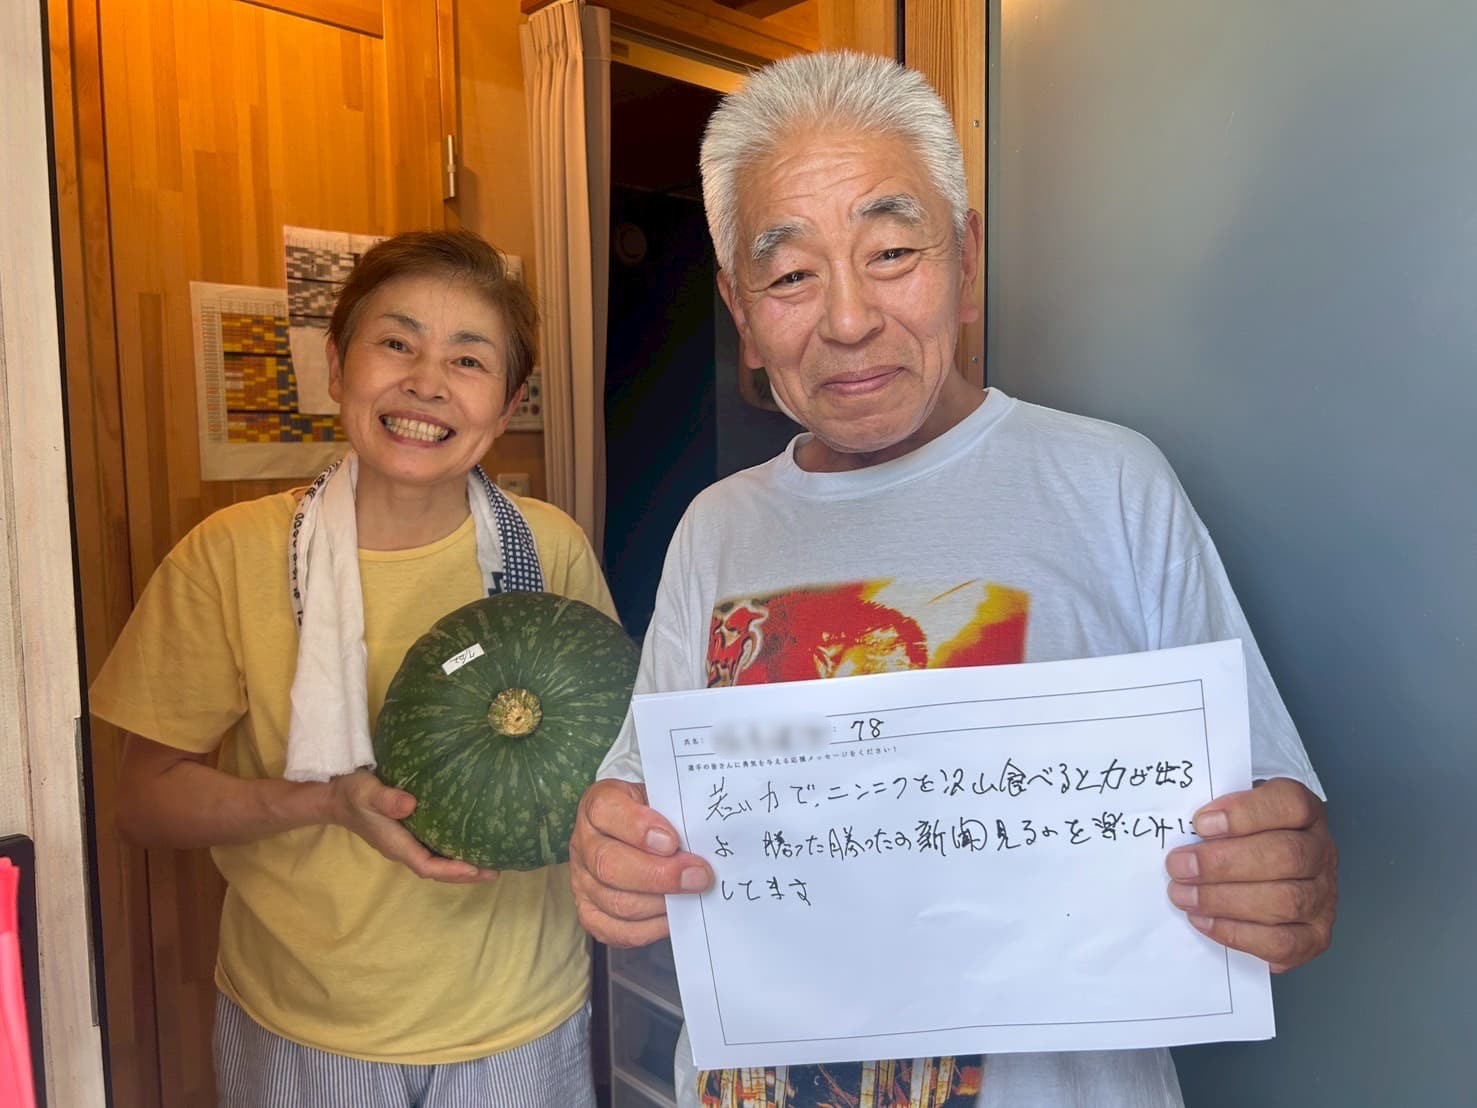 氏名: : 78
選手の皆さんに勇気を与える応援メッセージをください!
若い力で、ニンニクを沢山食べると力が出る
よ 勝った勝ったの新聞見るのを楽しみに
してます